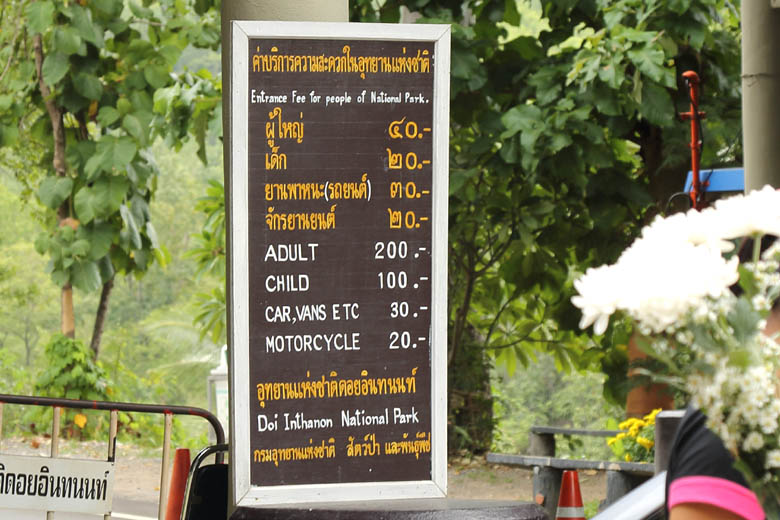 ค่าบริการความสะดวกในอุทยานแห่งชาติ
Entrance Fee for people of National Park.
ผู้ใหญ่ ๔๐.-
เด็ก ๒๐.-
ยานพาหนะ(รถยนต์) ๓๐.-
จักรยานยนต์ ๒๐.-
ADULT 200.-
CHILD 100.-
CAR,VANS ETC 30.-
MOTORCYCLE 20.-
อุทยานแห่งชาติดอยอินทนนท์
Doi Inthanon National Park
กรมอุทยานแห่งชาติ สัตว์ป่า และพันธุ์พืช
ติดอยอินทนนท์